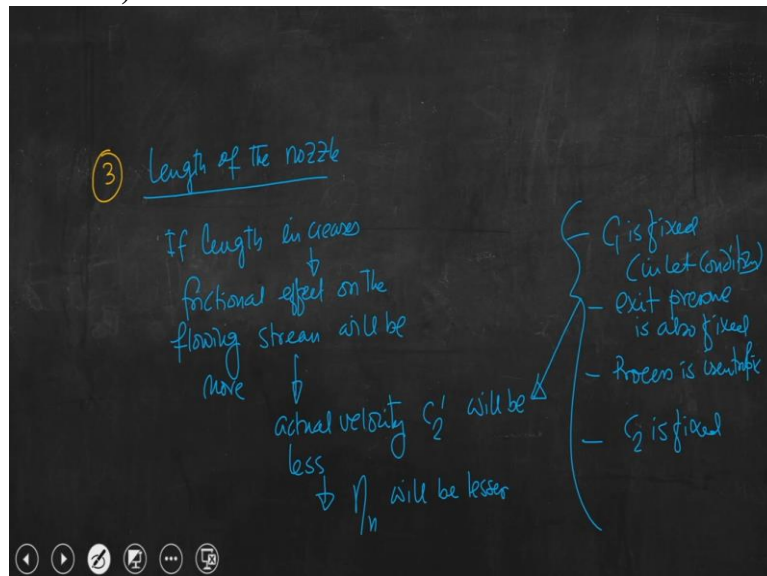 3 Length of the nozzle
If length increases
frictional effect on the
flowing stream will be
more
actual velocity C2' will be
less
ηn will be lesser
C1 is fixed
(inlet condition)
- exit pressure
is also fixed
- Process is isentropic
- C2 is fixed